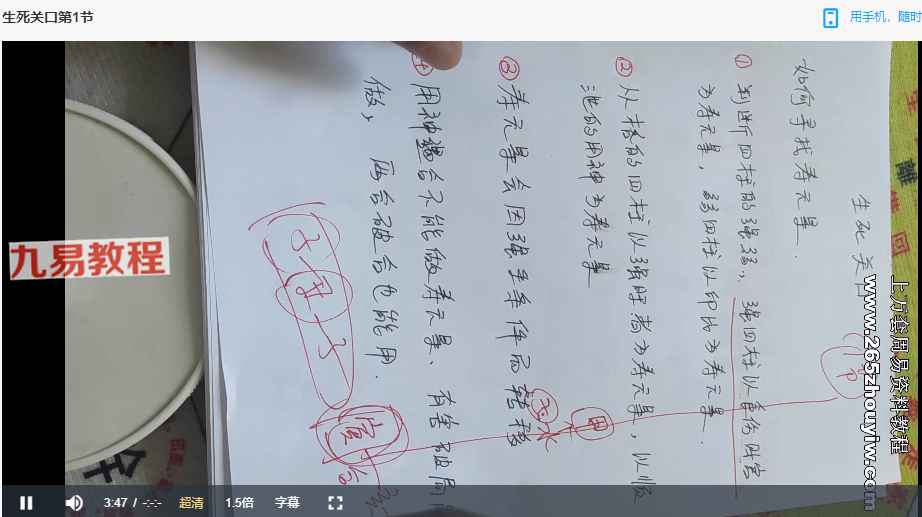 生死关口第1节
用手机，随时
生死关
如何寻找寿元星.
① 判断四柱的强弱，强四柱以食伤财官
为寿元星，弱四柱以印比为寿元星.
② 从格的四柱以强旺者为寿元星，以
的用神为寿元星
③ 寿元星会因强主条件而转移
用神逢合不能做寿元星、有害破局
做， 两合破合也能用.
子
子
寅
甲
水
九易教程
上万套周易资料教程
www.265zhouyiw.com
3:47 / -:-:-
超清
1.5倍
字幕